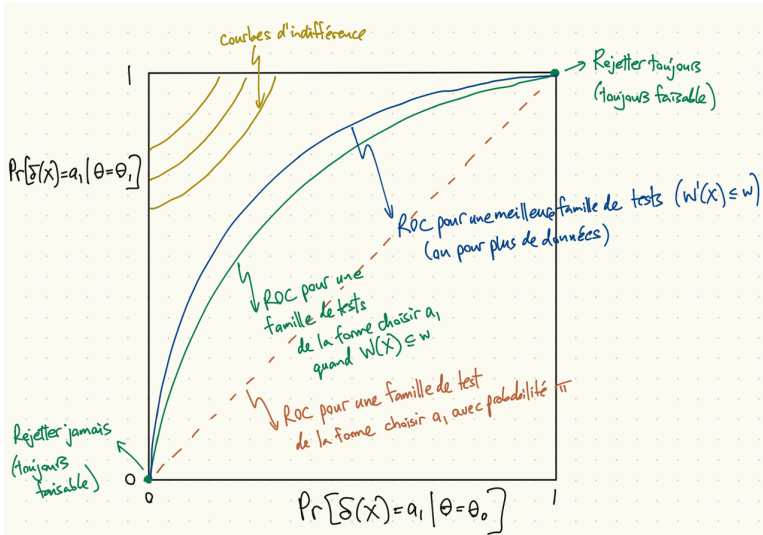 courbes d'indifférence
1
Rejetter toujours
(toujours faisable)
Pr[δ(X)=a₁|θ=θ₁]
ROC pour une meilleure famille de tests (W'(X)≤w)
(ou pour plus de données)
ROC pour une
famille de tests
de la forme choisir a₁
quand W(X)≤w
ROC pour une famille de test
de la forme choisir a₁ avec probabilité π
Rejetter jamais
(toujours
faisable)
0
0
1
Pr[δ(X)=a₁|θ=θ₀]